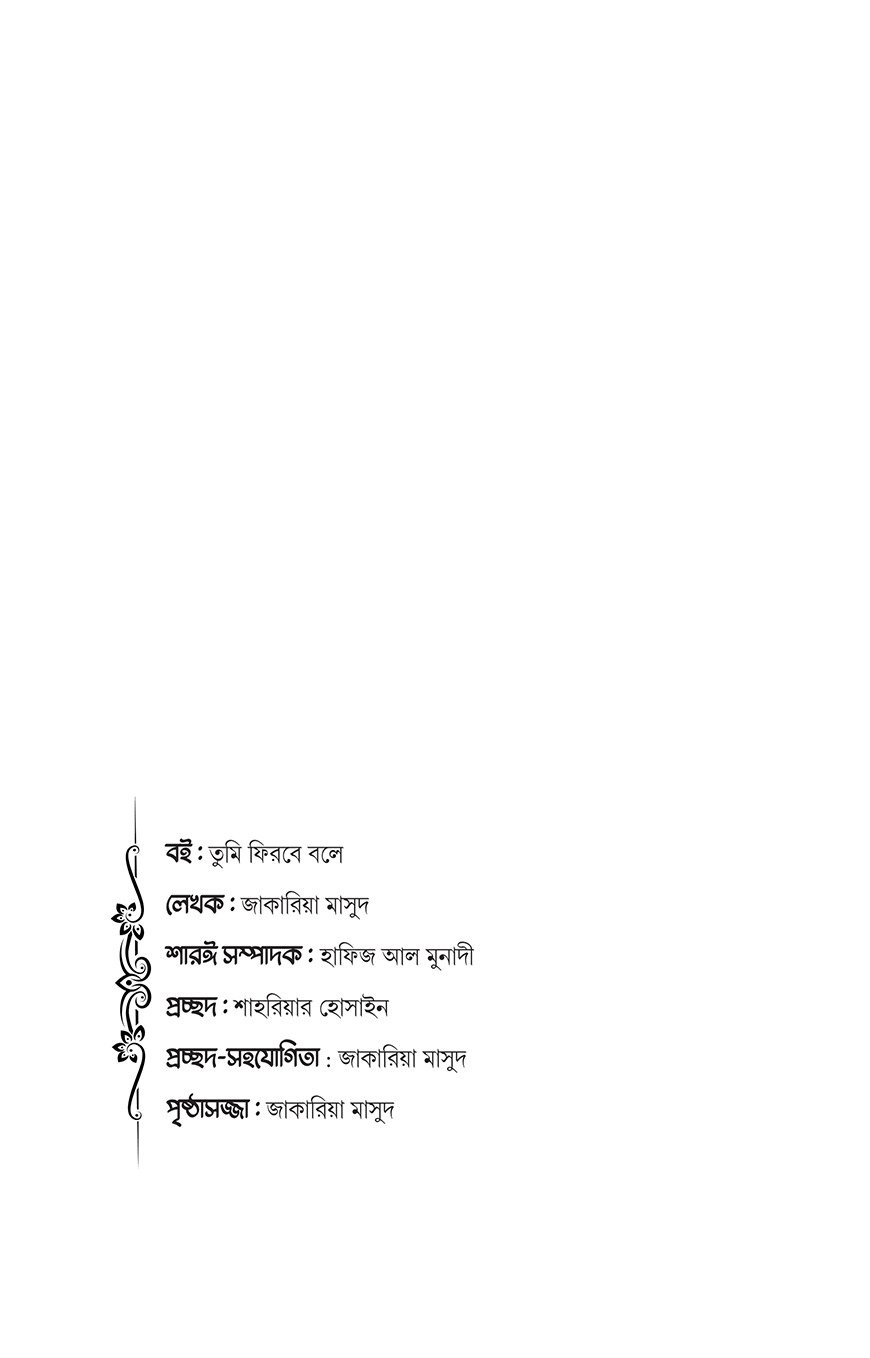 বই : তুমি ফিরবে বলে
লেখক : জাকারিয়া মাসুদ
শারঈ সম্পাদক : হাফিজ আল মুনাদী
প্রচ্ছদ : শাহরিয়ার হোসাইন
প্রচ্ছদ-সহযোগিতা : জাকারিয়া মাসুদ
পৃষ্ঠাসজ্জা : জাকারিয়া মাসুদ